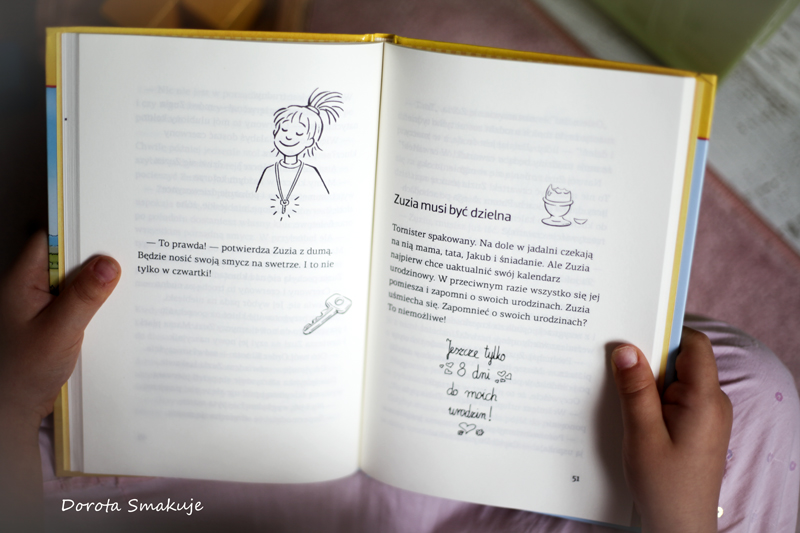 — To prawda! — potwierdza Zuzia z dumą.
Będzie nosić swoją smycz na swetrze. I to nie
tylko w czwartki!
Zuzia musi być dzielna
Tornister spakowany. Na dole w jadalni czekają
na nią mama, tata, Jakub i śniadanie. Ale Zuzia
najpierw chce uaktualnić swój kalendarz
urodzinowy. W przeciwnym razie wszystko się jej
pomiesza i zapomni o swoich urodzinach. Zuzia
uśmiecha się. Zapomnieć o swoich urodzinach?
To niemożliwe!
Jeszcze tylko
8 dni
do moich
urodzin!
51
Dorota Smakuje